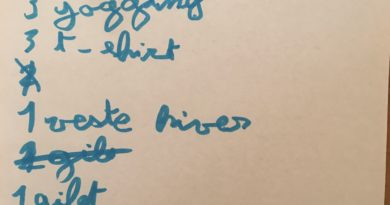 3 jogging
3 t-shirt
1 veste hiver
1 gilet